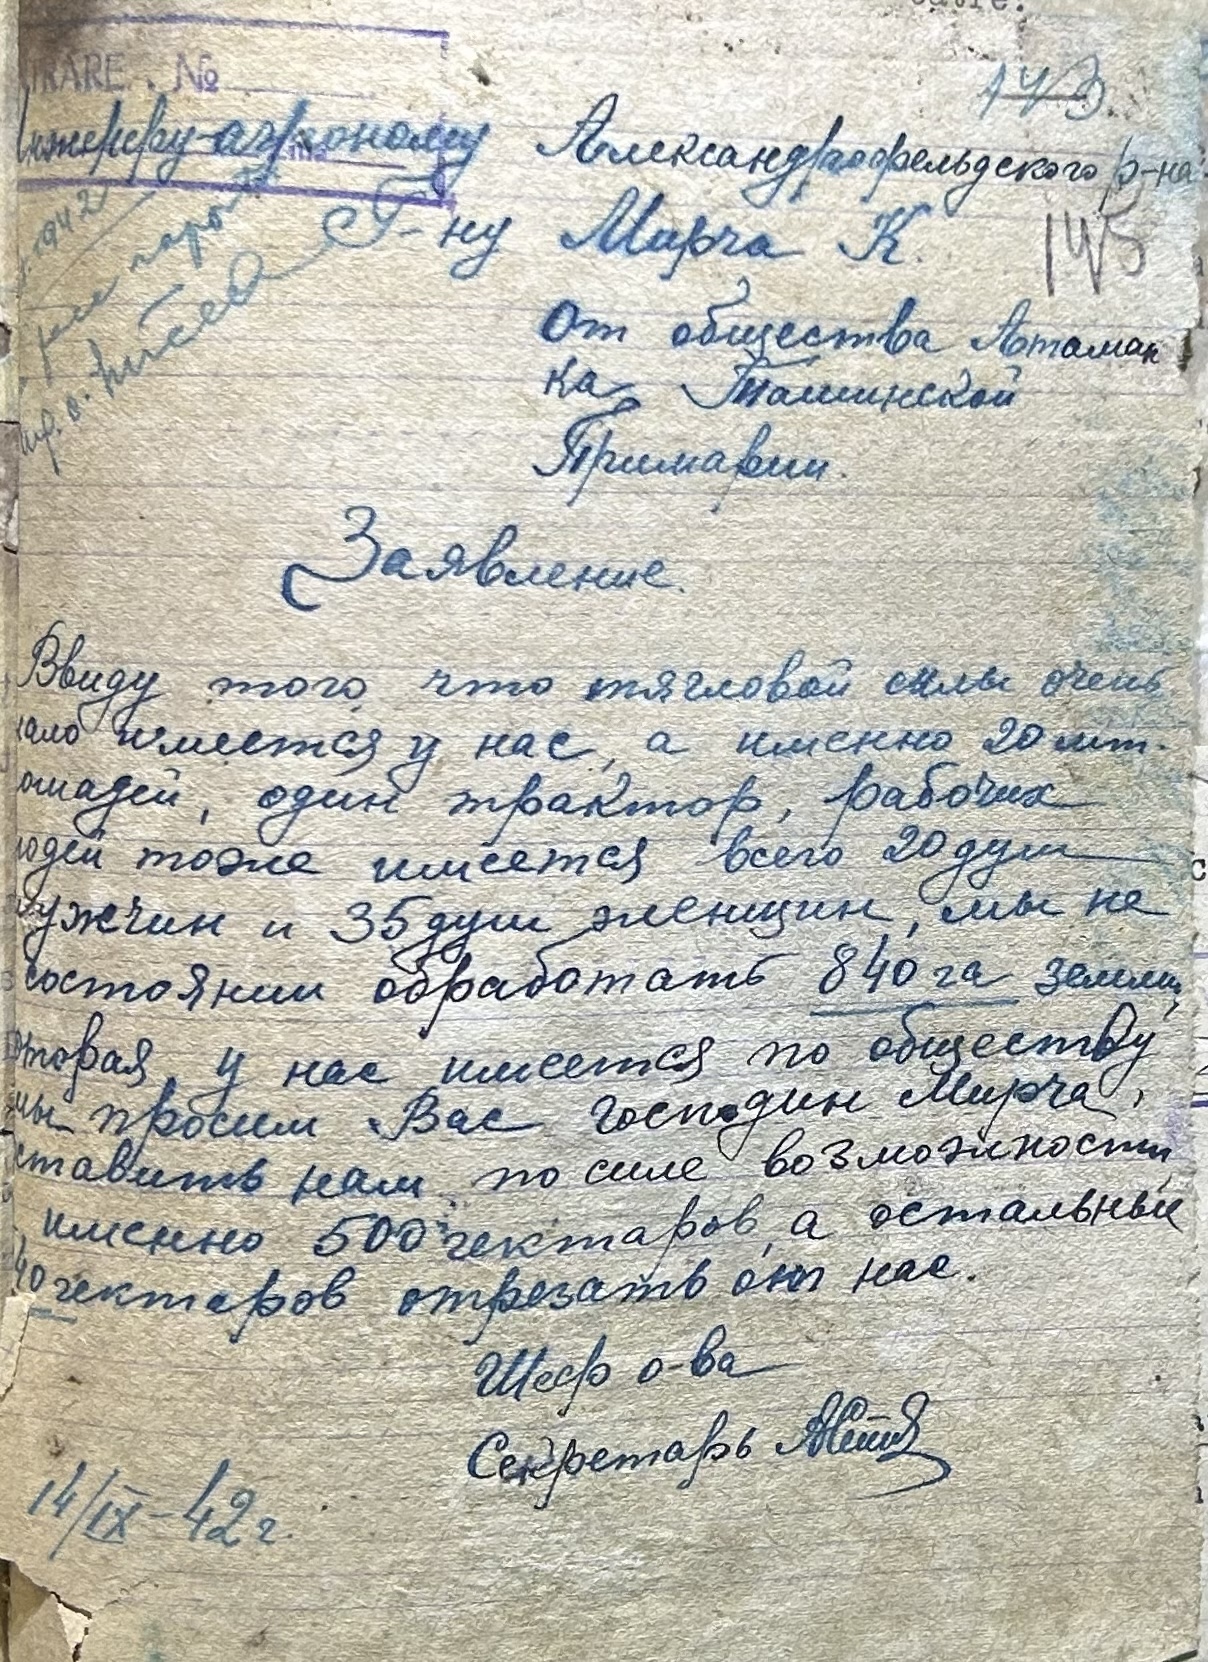 №
143
Инженеру-агроному Александрфельдского р-на
145
Г-ну Мирча К.
1942
от общества Атаман
ка Ташинской
Примарии.
Заявление.
Ввиду того, что тягловой силы очень
мало имеется у нас, а именно 20 шт.
лошадей, один трактор, рабочих
людей тоже имеется всего 20 душ
мужчин и 35 душ женщин, мы не
состоянии обработать 840 га земли,
которая у нас имеется по обществу
мы просим Вас господин Мирча,
ставить нам по силе возможности,
именно 500 гектаров, а остальные
40 гектаров отрезать от нас.
Шеф о-ва
Секретарь
14/IX-42 г.